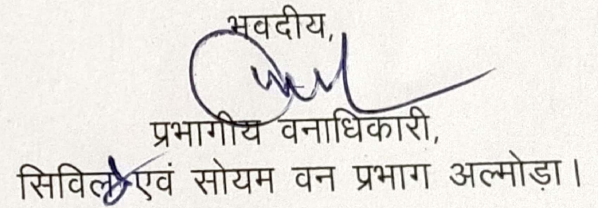 भवदीय,
प्रभागीय वनाधिकारी,
सिविल एवं सोयम वन प्रभाग अल्मोड़ा।